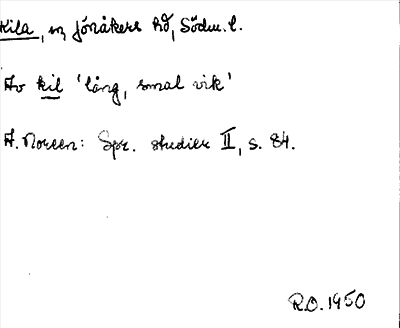 Kila, sn, Jönåkers hd, Södm. l.
Av kil 'lång, smal vik'
A. Noreen: Spr. studier II, s. 84.
R.O. 1950